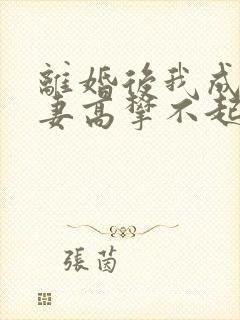 離婚後我成
妻高攀不起
張茵